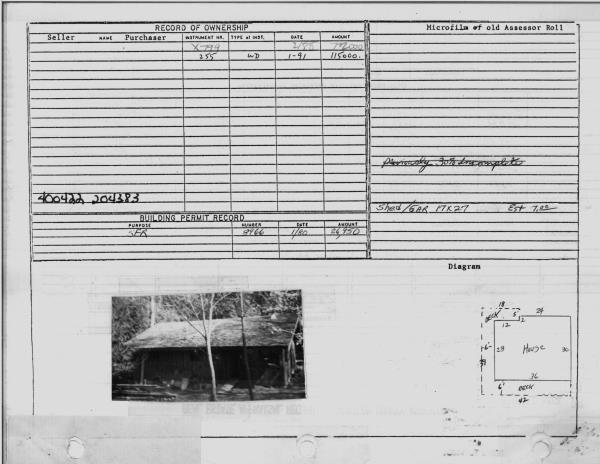 RECORD OF OWNERSHIP
Seller NAME Purchaser INSTRUMENT NR. TYPE of INST. DATE AMOUNT
X-799 2/88
255 WD 1-91 115000.
400422 204383
BUILDING PERMIT RECORD
PURPOSE NUMBER DATE AMOUNT
SFR 8966 1/80 26,950
Microfilm of old Assessor Roll
Previously 30% Incomplete
Shed/GAR 17x27 Est
Diagram
18
24
DECK 5' 2
12
6' 28 House 30
36
6' DECK
42